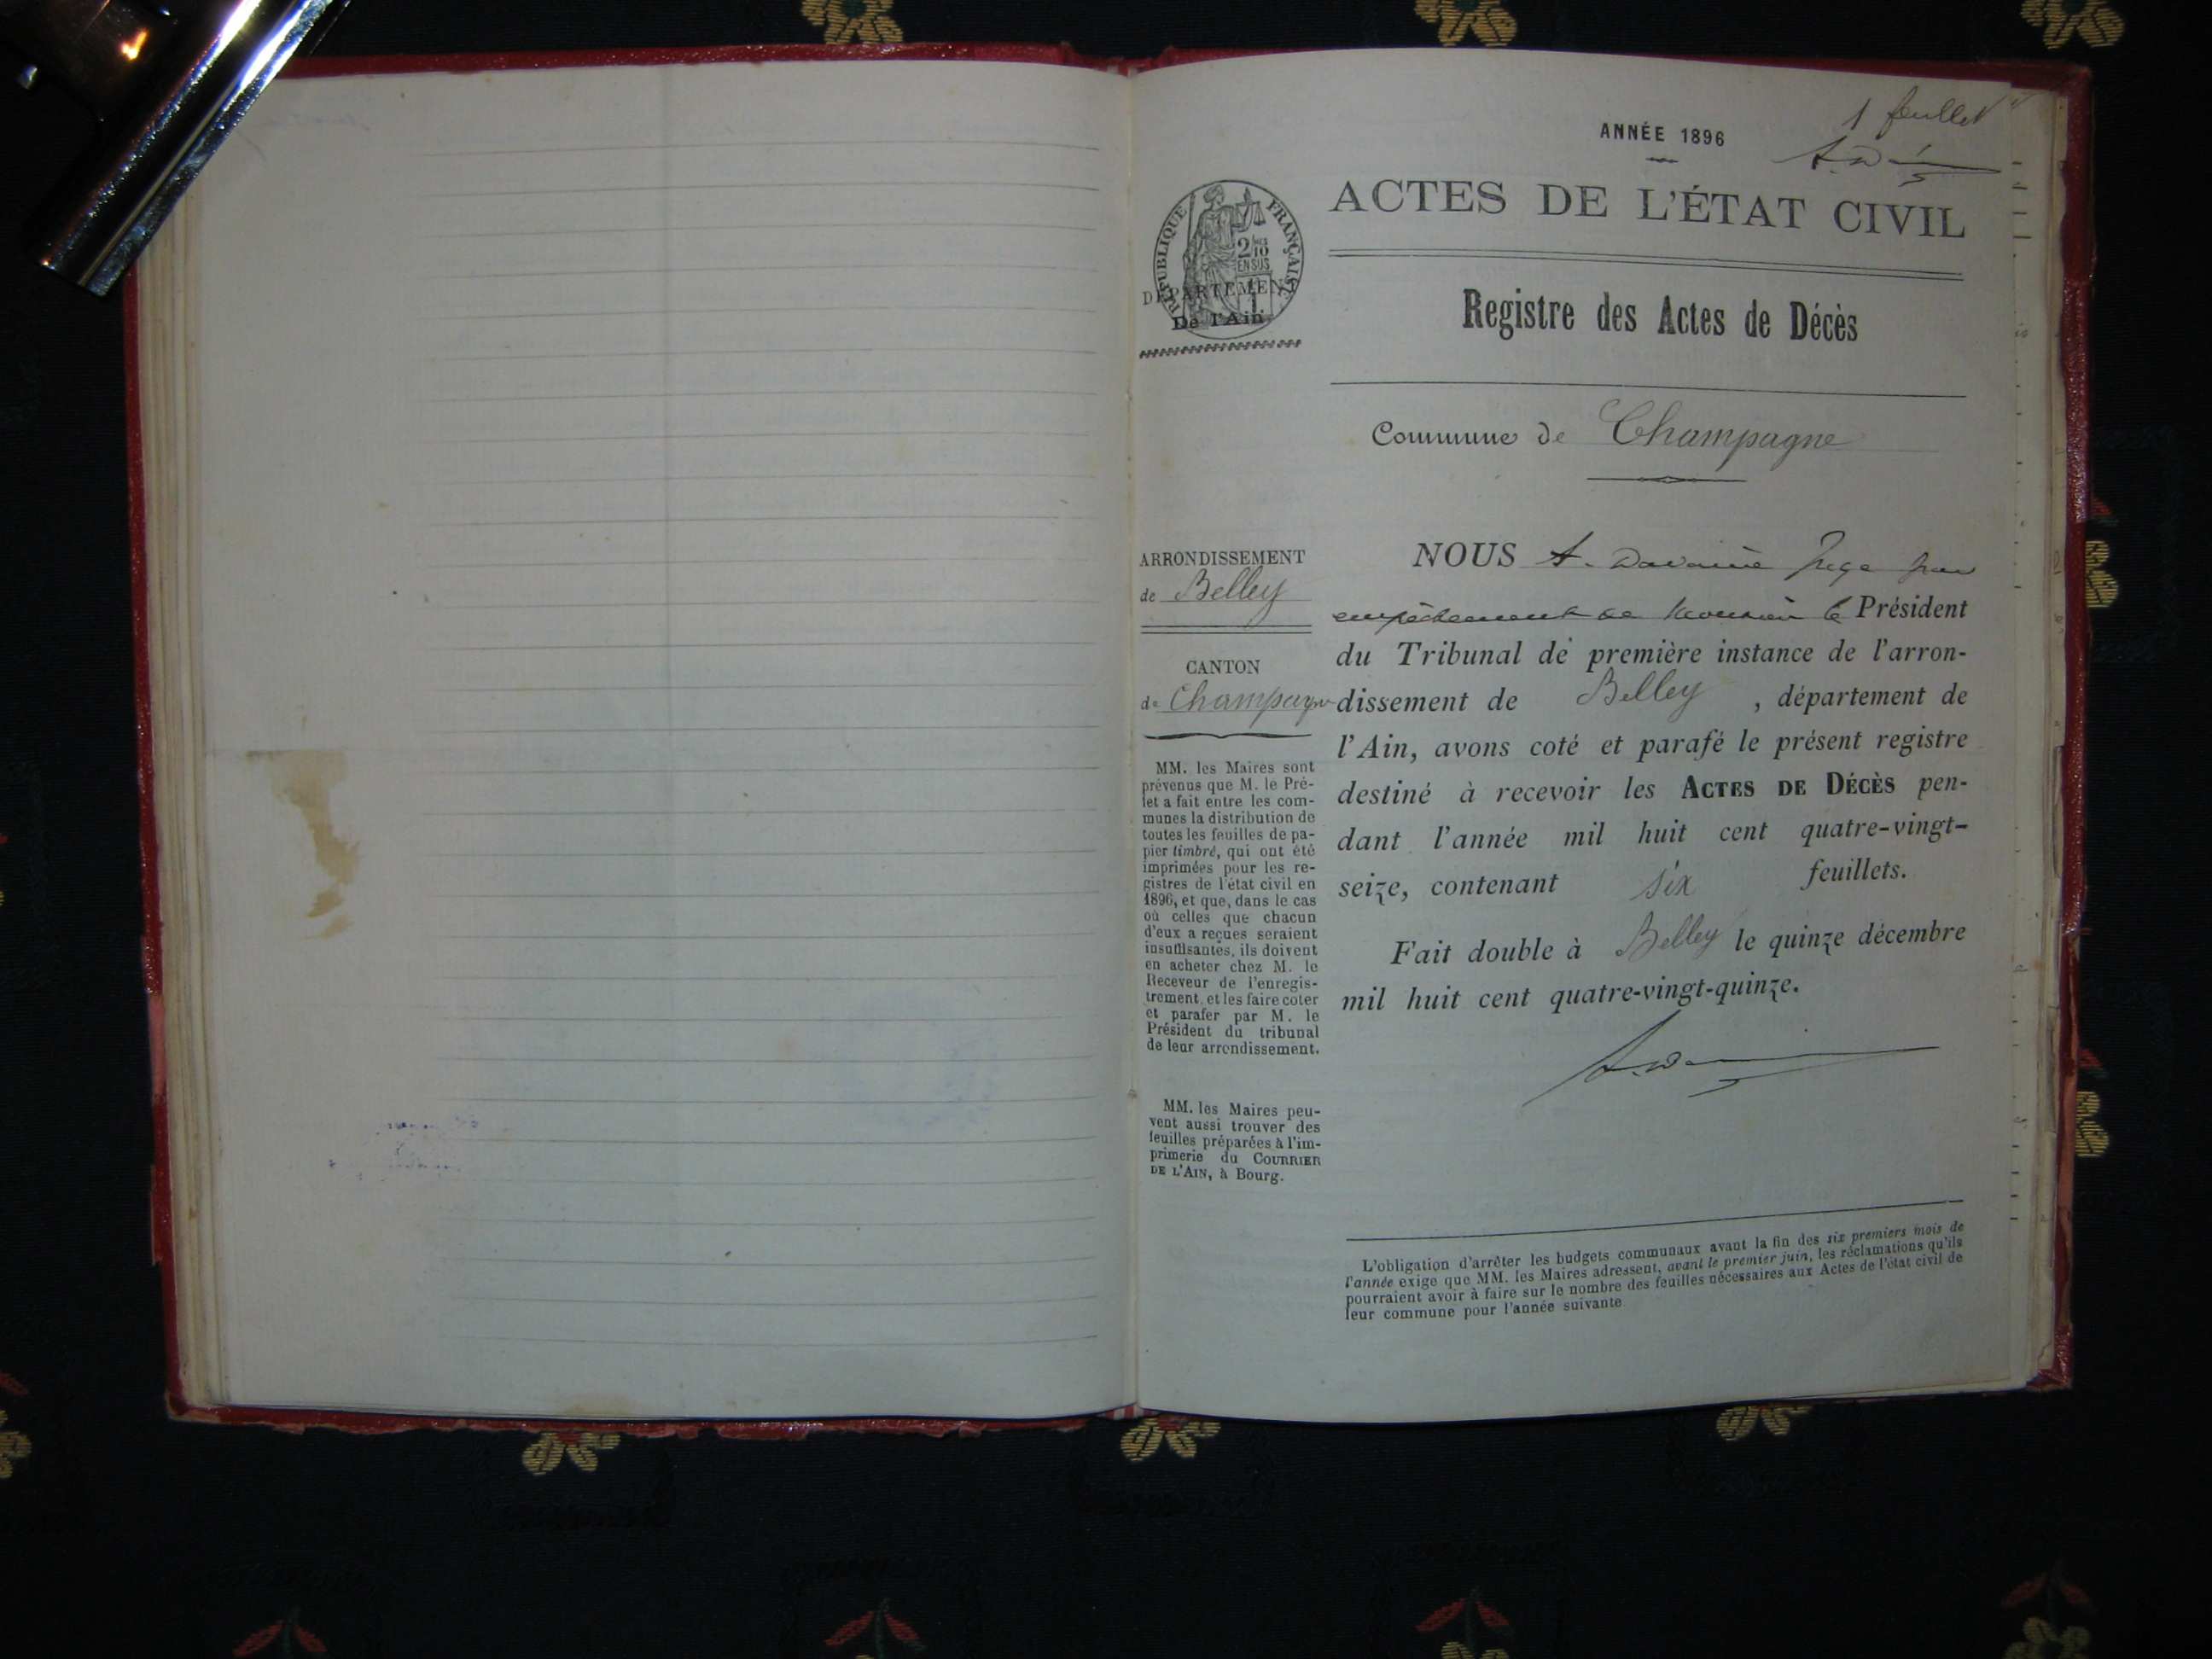 1 feuillet
ANNÉE 1896
ACTES DE L'ÉTAT CIVIL
RÉPUBLIQUE FRANÇAISE
2/10 EN SUS
DÉPARTEMENT
De l'Ain
Registre des Actes de Décès
Commune de Champagne
ARRONDISSEMENT
de Belley
CANTON
de Champagne
MM. les Maires sont
prévenus que M. le Pré-
fet a fait entre les com-
munes la distribution de
toutes les feuilles de pa-
pier timbré, qui ont été
imprimées pour les re-
gistres de l'état civil en
1896, et que, dans le cas
où celles que chacun
d'eux a reçues seraient
insuffisantes, ils doivent
en acheter chez M. le
Receveur de l'enregis-
trement et les faire coter
et parafer par M. le
Président du tribunal
de leur arrondissement.
MM. les Maires peu-
vent aussi trouver des
feuilles préparées à l'im-
primerie du COURRIER
DE L'AIN, à Bourg.
NOUS A. Juge par
empêchement de Monsieur le Président
du Tribunal de première instance de l'arron-
dissement de Belley, département de
l'Ain, avons coté et parafé le présent registre
destiné à recevoir les ACTES DE DÉCÈS pen-
dant l'année mil huit cent quatre-vingt-
seize, contenant six feuillets.
Fait double à Belley le quinze décembre
mil huit cent quatre-vingt-quinze.
L'obligation d'arrêter les budgets communaux avant la fin des six premiers mois de
l'année exige que MM. les Maires adressent, avant le premier juin, les réclamations qu'ils
pourraient avoir à faire sur le nombre des feuilles nécessaires aux Actes de l'état civil de
leur commune pour l'année suivante.